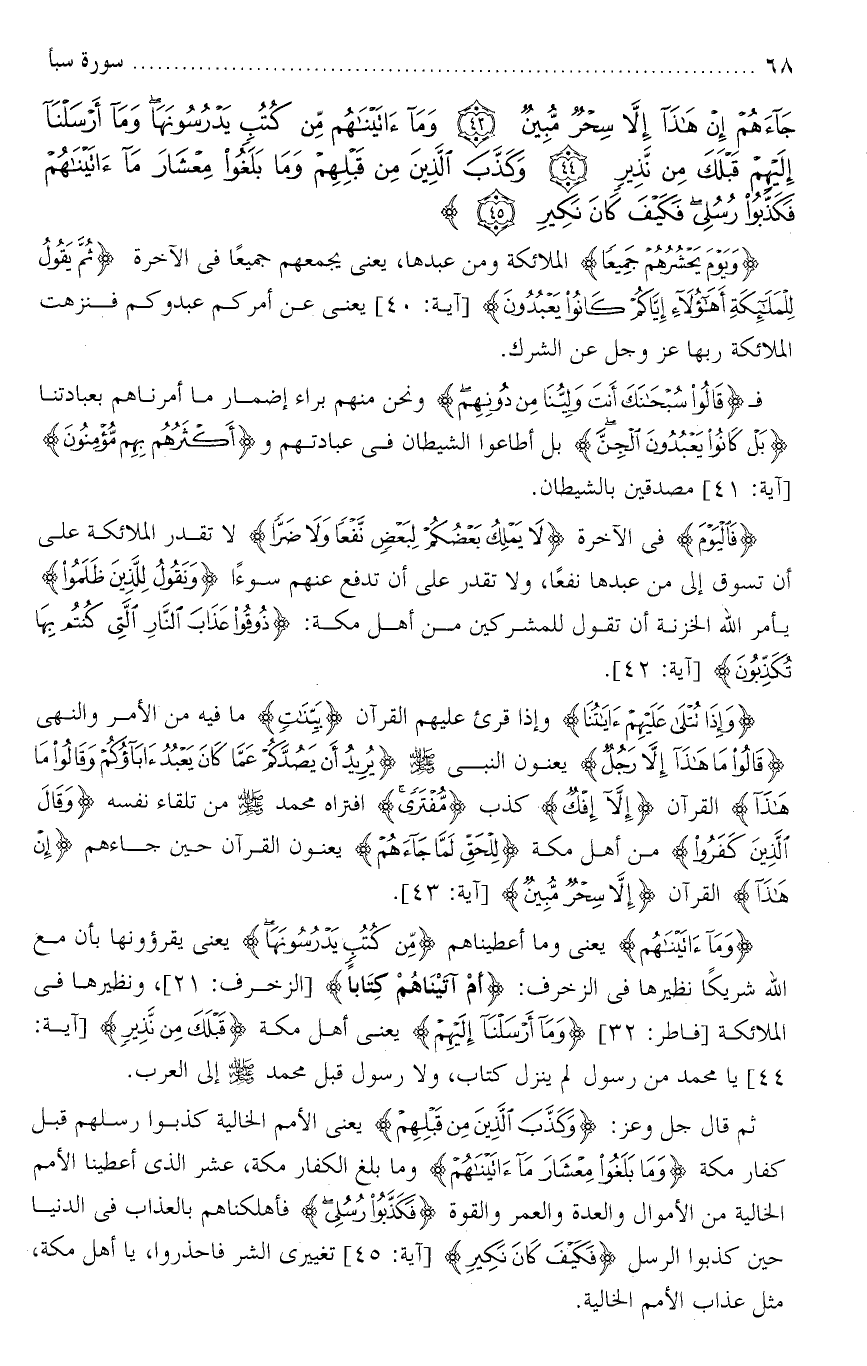 ٦٨ ........ سورة سبأ
جَآءَهُمْ إِنْ هَٰذَآ إِلَّا سِحْرٌ مُّبِينٌ ﴿٤٣﴾ وَمَآ ءَاتَيْنَٰهُم مِّن كُتُبٍ يَدْرُسُونَهَا ۖ وَمَآ أَرْسَلْنَآ
إِلَيْهِمْ قَبْلَكَ مِن نَّذِيرٍ ﴿٤٤﴾ وَكَذَّبَ ٱلَّذِينَ مِن قَبْلِهِمْ وَمَا بَلَغُوا۟ مِعْشَارَ مَآ ءَاتَيْنَٰهُمْ
فَكَذَّبُوا۟ رُسُلِى ۖ فَكَيْفَ كَانَ نَكِيرِ ﴿٤٥﴾ ﴾
﴿وَيَوْمَ يَحْشُرُهُمْ جَمِيعًا﴾ الملائكة ومن عبدها، يعنى يجمعهم جميعًا فى الآخرة ﴿ثُمَّ يَقُولُ
لِلْمَلَٰٓئِكَةِ أَهَٰٓؤُلَآءِ إِيَّاكُمْ كَانُوا۟ يَعْبُدُونَ﴾ [آية: ٤٠] يعنى عن أمركم عبدوكم فنزهت
الملائكة ربها عز وجل عن الشرك.
فـ ﴿قَالُوا۟ سُبْحَٰنَكَ أَنتَ وَلِيُّنَا مِن دُونِهِم ۖ﴾ ونحن منهم براء إضمار ما أمرناهم بعبادتنا
﴿بَلْ كَانُوا۟ يَعْبُدُونَ ٱلْجِنَّ ۖ﴾ بل أطاعوا الشيطان فى عبادتهم و ﴿أَكْثَرُهُم بِهِم مُّؤْمِنُونَ﴾
[آية: ٤١] مصدقين بالشيطان.
﴿فَٱلْيَوْمَ﴾ فى الآخرة ﴿لَا يَمْلِكُ بَعْضُكُمْ لِبَعْضٍ نَّفْعًا وَلَا ضَرًّا﴾ لا تقدر الملائكة على
أن تسوق إلى من عبدها نفعًا، ولا تقدر على أن تدفع عنهم سوءًا ﴿وَنَقُولُ لِلَّذِينَ ظَلَمُوا۟﴾
يأمر الله الخزنة أن تقول للمشركين من أهل مكة: ﴿ذُوقُوا۟ عَذَابَ ٱلنَّارِ ٱلَّتِى كُنتُم بِهَا
تُكَذِّبُونَ﴾ [آية: ٤٢].
﴿وَإِذَا تُتْلَىٰ عَلَيْهِمْ ءَايَٰتُنَا﴾ وإذا قرئ عليهم القرآن ﴿بَيِّنَٰتٍ﴾ ما فيه من الأمر والنهى
﴿قَالُوا۟ مَا هَٰذَآ إِلَّا رَجُلٌ﴾ يعنون النبى ﷺ ﴿يُرِيدُ أَن يَصُدَّكُمْ عَمَّا كَانَ يَعْبُدُ ءَابَآؤُكُمْ وَقَالُوا۟ مَا
هَٰذَآ﴾ القرآن ﴿إِلَّآ إِفْكٌ﴾ كذب ﴿مُّفْتَرًى ۚ﴾ افتراه محمد ﷺ من تلقاء نفسه ﴿وَقَالَ
ٱلَّذِينَ كَفَرُوا۟﴾ من أهل مكة ﴿لِلْحَقِّ لَمَّا جَآءَهُمْ﴾ يعنون القرآن حين جاءهم ﴿إِنْ
هَٰذَآ﴾ القرآن ﴿إِلَّا سِحْرٌ مُّبِينٌ﴾ [آية: ٤٣].
﴿وَمَآ ءَاتَيْنَٰهُم﴾ يعنى وما أعطيناهم ﴿مِّن كُتُبٍ يَدْرُسُونَهَا ۖ﴾ يعنى يقرؤونها بأن مع
الله شريكًا نظيرها فى الزخرف: ﴿أَمْ آتَيْنَاهُمْ كِتَاباً﴾ [الزخرف: ٢١]، ونظيرها فى
الملائكة [فاطر: ٣٢] ﴿وَمَآ أَرْسَلْنَآ إِلَيْهِمْ﴾ يعنى أهل مكة ﴿قَبْلَكَ مِن نَّذِيرٍ﴾ [آية:
٤٤] يا محمد من رسول لم ينزل كتاب، ولا رسول قبل محمد ﷺ إلى العرب.
ثم قال جل وعز: ﴿وَكَذَّبَ ٱلَّذِينَ مِن قَبْلِهِمْ﴾ يعنى الأمم الخالية كذبوا رسلهم قبل
كفار مكة ﴿وَمَا بَلَغُوا۟ مِعْشَارَ مَآ ءَاتَيْنَٰهُمْ﴾ وما بلغ الكفار مكة، عشر الذى أعطينا الأمم
الخالية من الأموال والعدة والعمر والقوة ﴿فَكَذَّبُوا۟ رُسُلِى ۖ﴾ فأهلكناهم بالعذاب فى الدنيا
حين كذبوا الرسل ﴿فَكَيْفَ كَانَ نَكِيرِ﴾ [آية: ٤٥] تغييرى الشر فاحذروا، يا أهل مكة،
مثل عذاب الأمم الخالية.